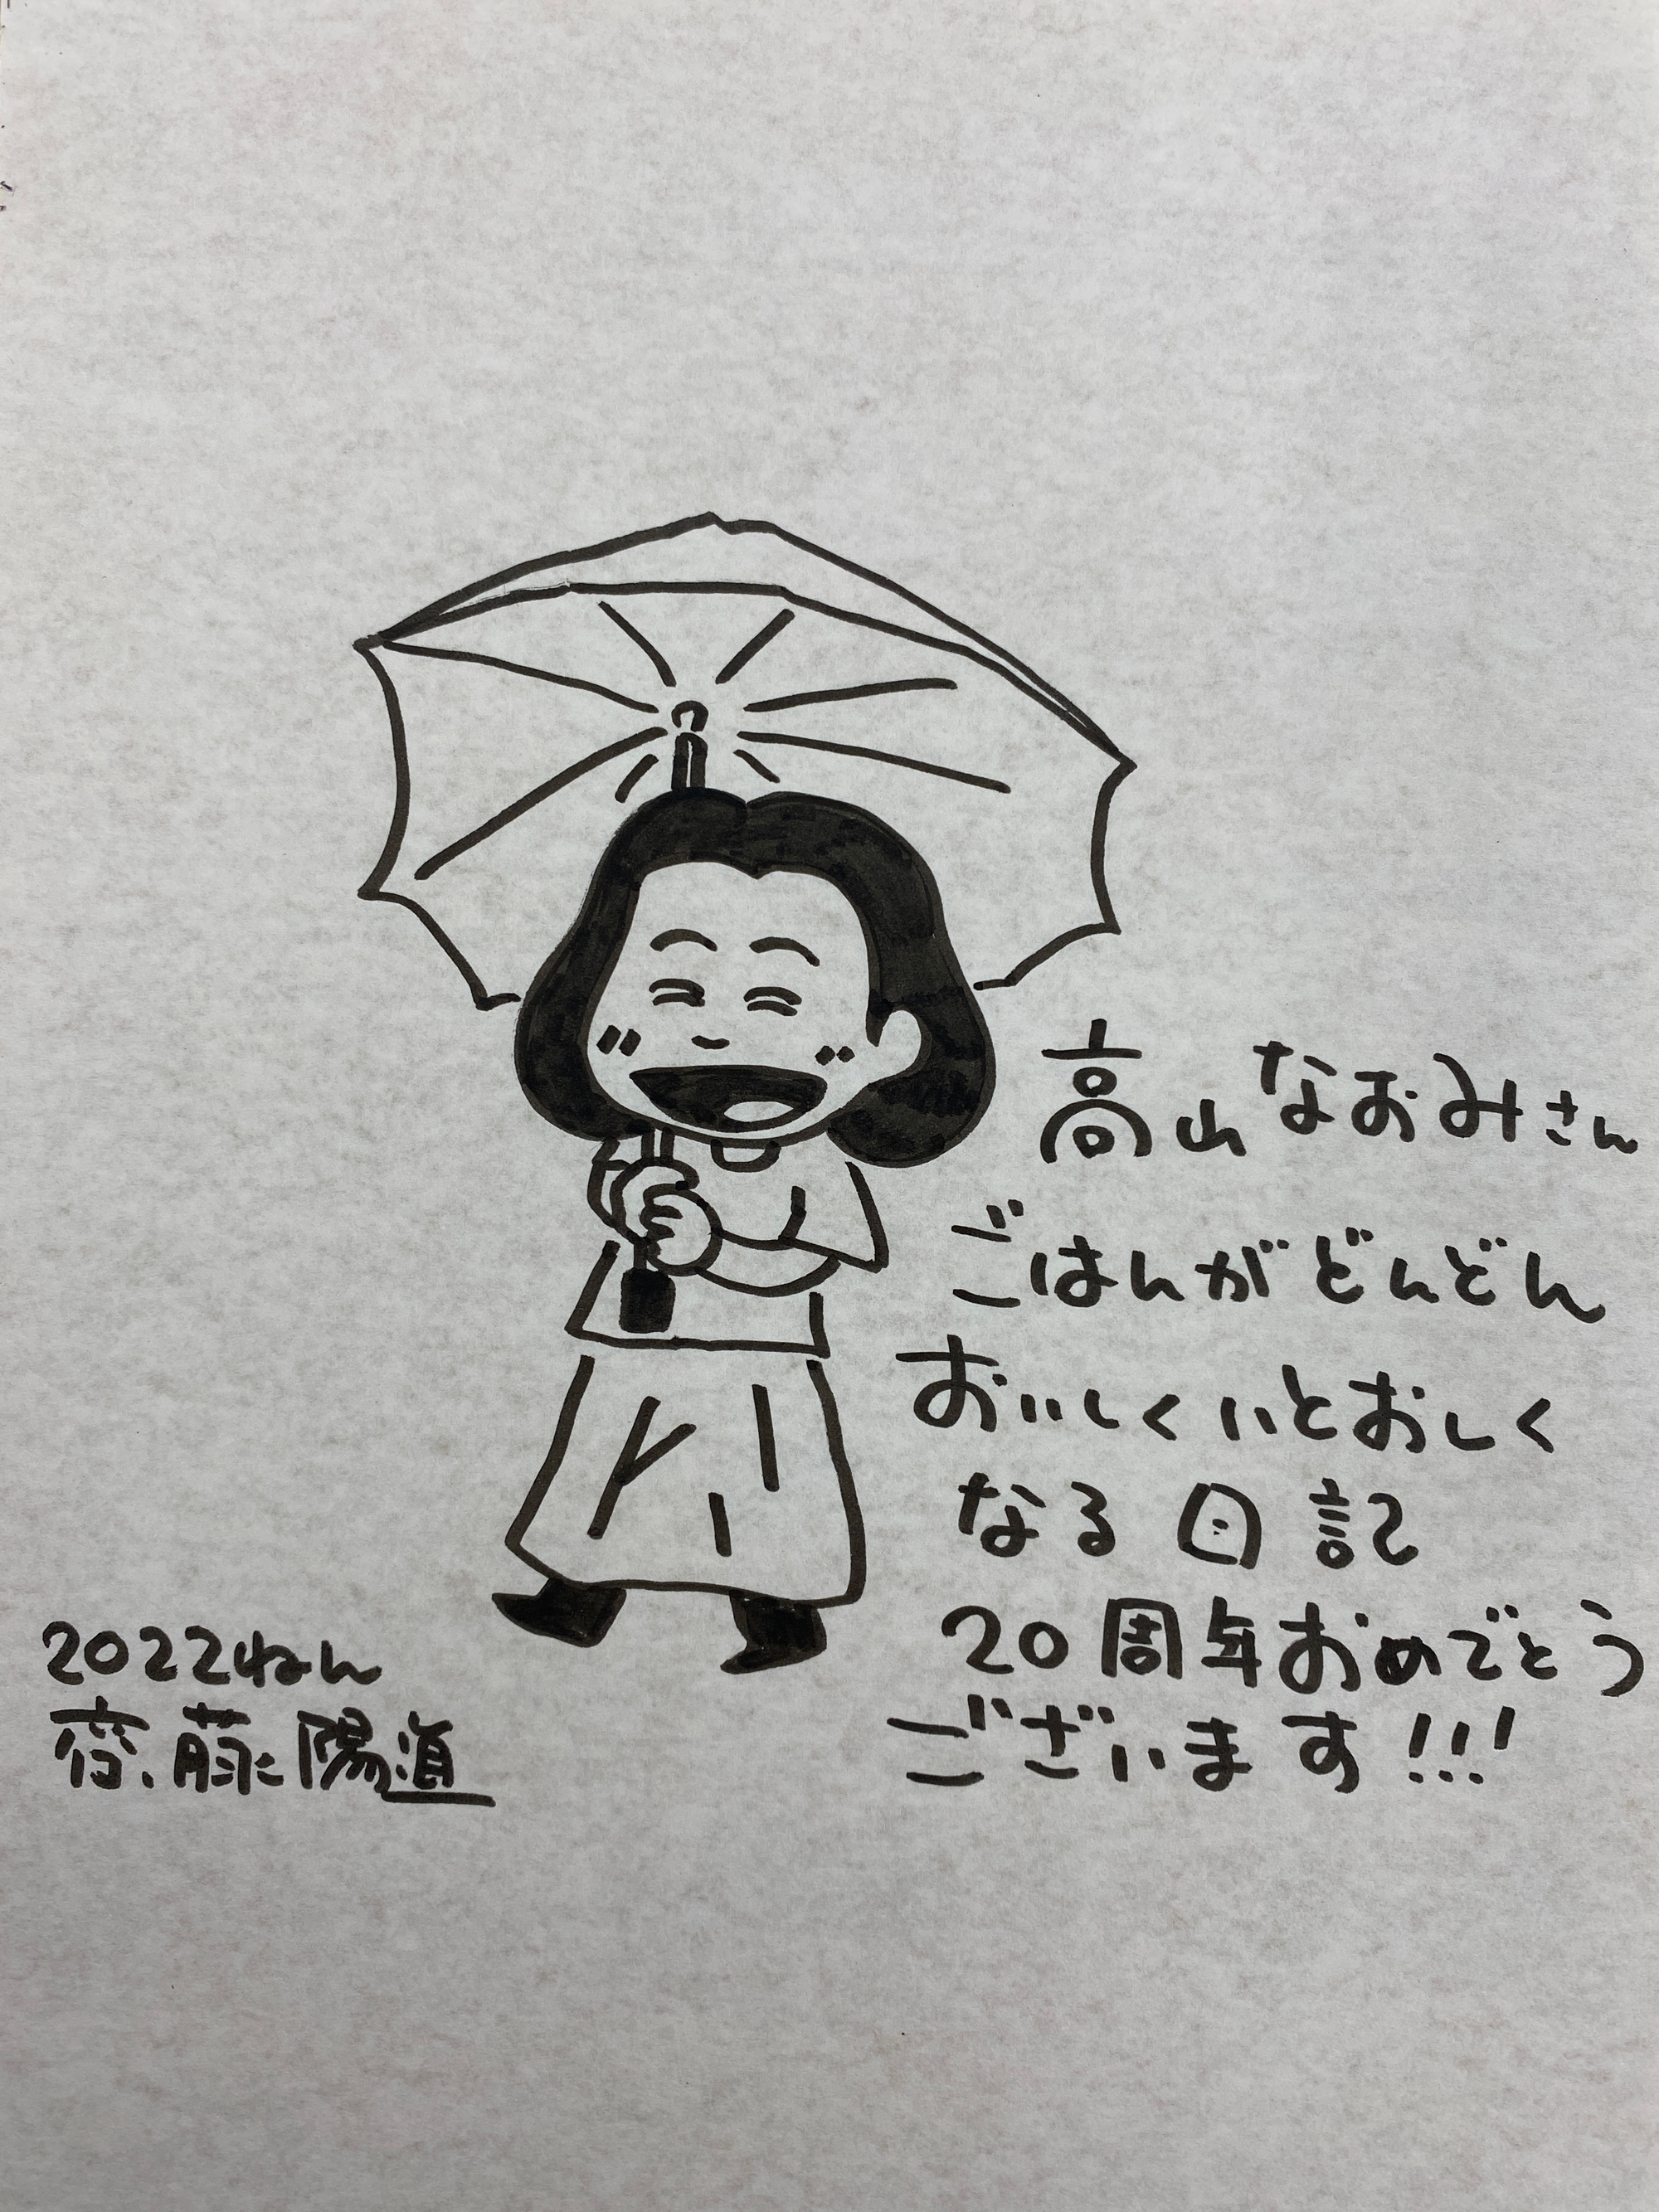 高山なおみさん
ごはんがどんどん
おいしくいとおしく
なる日記
20周年おめでとう
ございます!!!
2022ねん
齋藤陽道